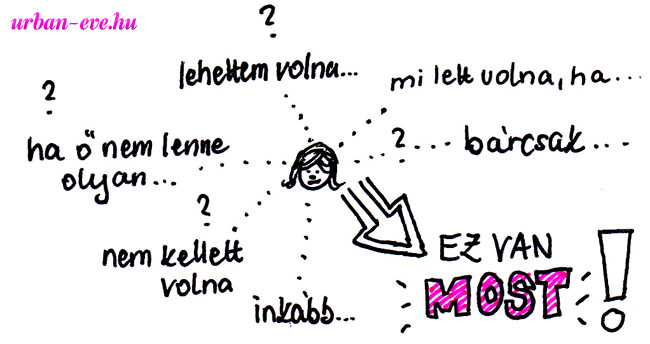 urban-eve.hu
?
lehettem volna...
mi lett volna, ha...
?
ha ő nem lenne
olyan...
? ... bárcsak...
?
nem kellett
volna
inkább...
EZ VAN
MOST!